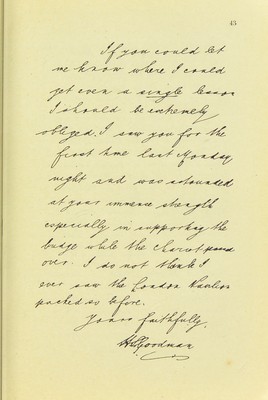 45
If you could let
me know where I could
get even a single lesson
I should be extremely
obliged. I saw you for the
first time last Monday
night and was astounded
at your immense strength
especially in supporting the
bridge while the chariot passed
over. I do not think I
ever saw the London Pavilion
packed so before.
Yours faithfully,
Goodman